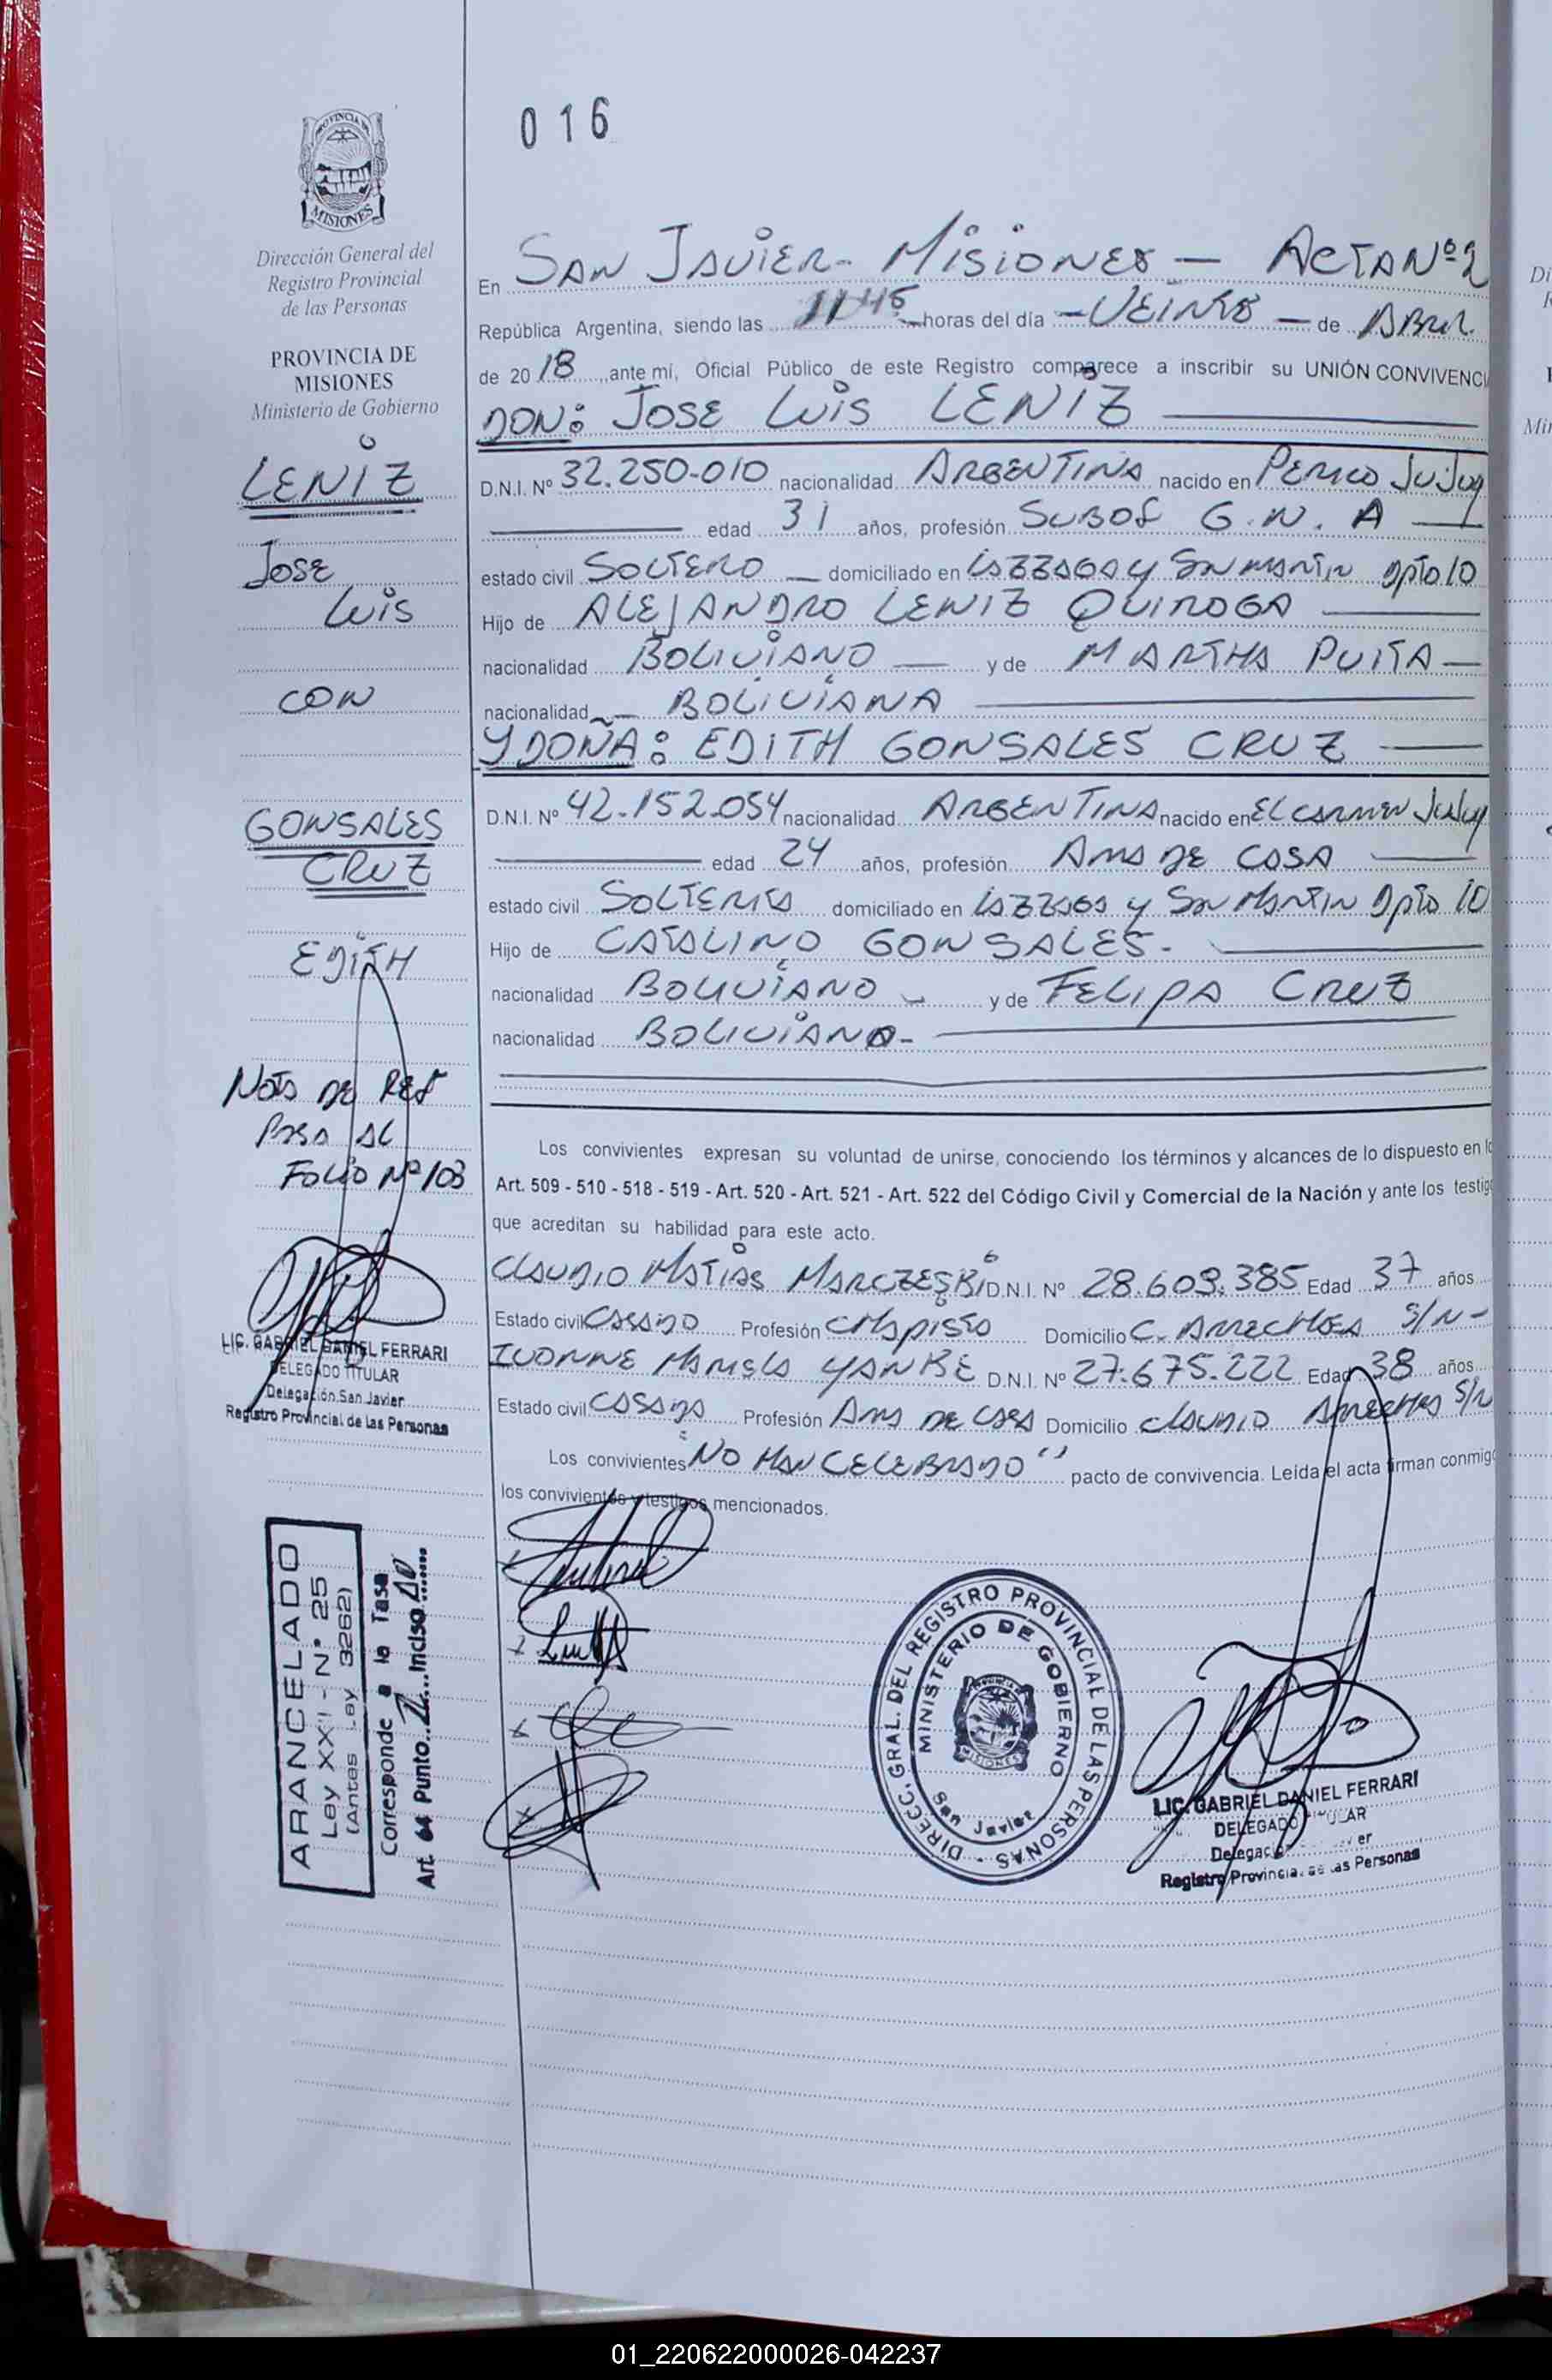 016
PROVINCIA DE
MISIONES
Dirección General del
Registro Provincial
de las Personas
PROVINCIA DE
MISIONES
Ministerio de Gobierno
LENIZ
JOSE
LUIS
CON
GONSALES
CRUZ
EDITH
NOTA DE REF
PASA AL
FOLIO Nº 103
LIC. GABRIEL DANIEL FERRARI
DELEGADO TITULAR
Delegación San Javier
Registro Provincial de las Personas
En SAN JAVIER - MISIONES - ACTA Nº 2
República Argentina, siendo las 11 45 horas del día - VEINTE - de ABRIL
de 2018, ante mí, Oficial Público de este Registro comparece a inscribir su UNIÓN CONVIVENCI
DON: JOSE LUIS LENIZ
D.N.I. Nº 32.250.010 nacionalidad ARGENTINA nacido en PERICO JUJUY
edad 31 años, profesión SUBOF G.N.A
estado civil SOLTERO domiciliado en LAZZAGA y SAN MARTIN DPTO 10
Hijo de ALEJANDRO LENIZ QUIROGA
nacionalidad BOLIVIANO y de MARTHA PUITA
nacionalidad BOLIVIANA
Y DOÑA: EDITH GONSALES CRUZ
D.N.I. Nº 42.152.054 nacionalidad ARGENTINA nacido en EL CARMEN JUJUY
edad 24 años, profesión AMA DE CASA
estado civil SOLTERA domiciliado en LAZZAGA y SAN MARTIN DPTO 10
Hijo de CATALINO GONSALES -
nacionalidad BOLIVIANO y de FELIPA CRUZ
nacionalidad BOLIVIANA -
Los convivientes expresan su voluntad de unirse, conociendo los términos y alcances de lo dispuesto en lo
Art. 509 - 510 - 518 - 519 - Art. 520 - Art. 521 - Art. 522 del Código Civil y Comercial de la Nación y ante los testig
que acreditan su habilidad para este acto.
CLAUDIO MATIAS MARCZESKI D.N.I. Nº 28.609.385 Edad 37 años
Estado civil CASADO Profesión CHAPISTA Domicilio C. ARRECHEA S/N -
IVONNE PAMELA YANKE D.N.I. Nº 27.675.222 Edad 38 años
Estado civil CASADA Profesión AMA DE CASA Domicilio CLAUDIO ARRECHEA S/N
Los convivientes "NO HAN CELEBRADO" pacto de convivencia. Leída el acta firman conmigo
los convivientes y testigos mencionados.
ARANCELADO
Ley XXII - Nº 25
(Antes Ley 3262)
Corresponde a la Tasa
Art. 64 Punto Inciso
DIRECC. GRAL. DEL REGISTRO PROVINCIAL DE LAS PERSONAS -
MINISTERIO DE GOBIERNO
San Javier
MISIONES
LIC. GABRIEL DANIEL FERRARI
DELEGADO
Registro Provincial de las Personas
01_220622000026-042237